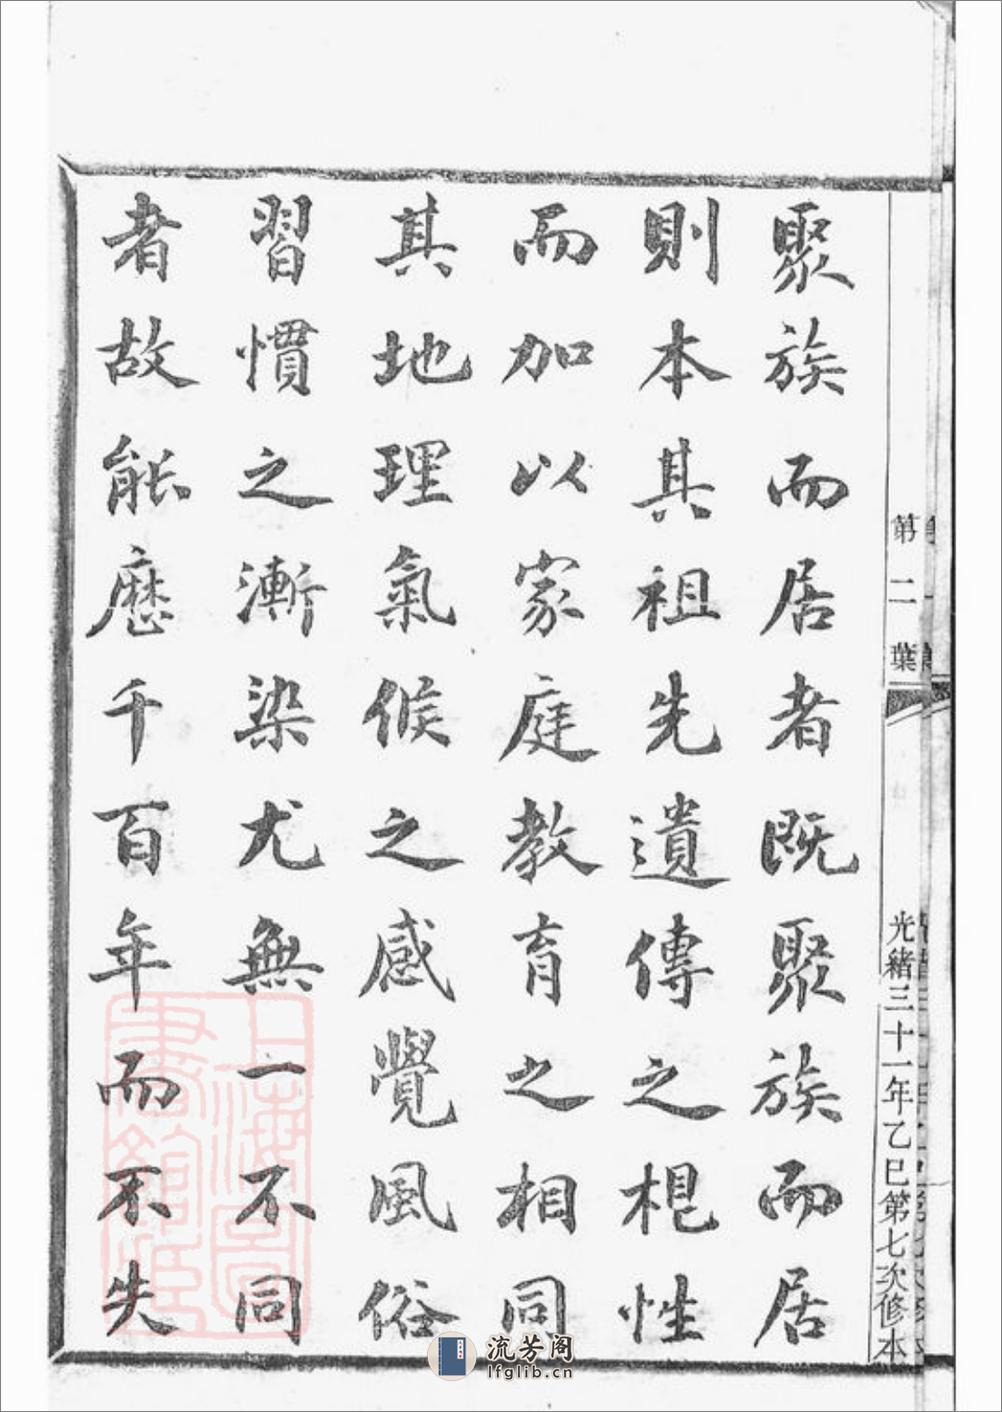 第二葉
光緒三十一年乙巳第七次修本
聚族而居者既聚族而居
則本其祖先遺傳之根性
而加以家庭教育之相同
其地理氣候之感覺風俗
習慣之漸染尤無一不同
者故能歷千百年而不失
上海圖書館藏
流芳阁
lfglib.cn